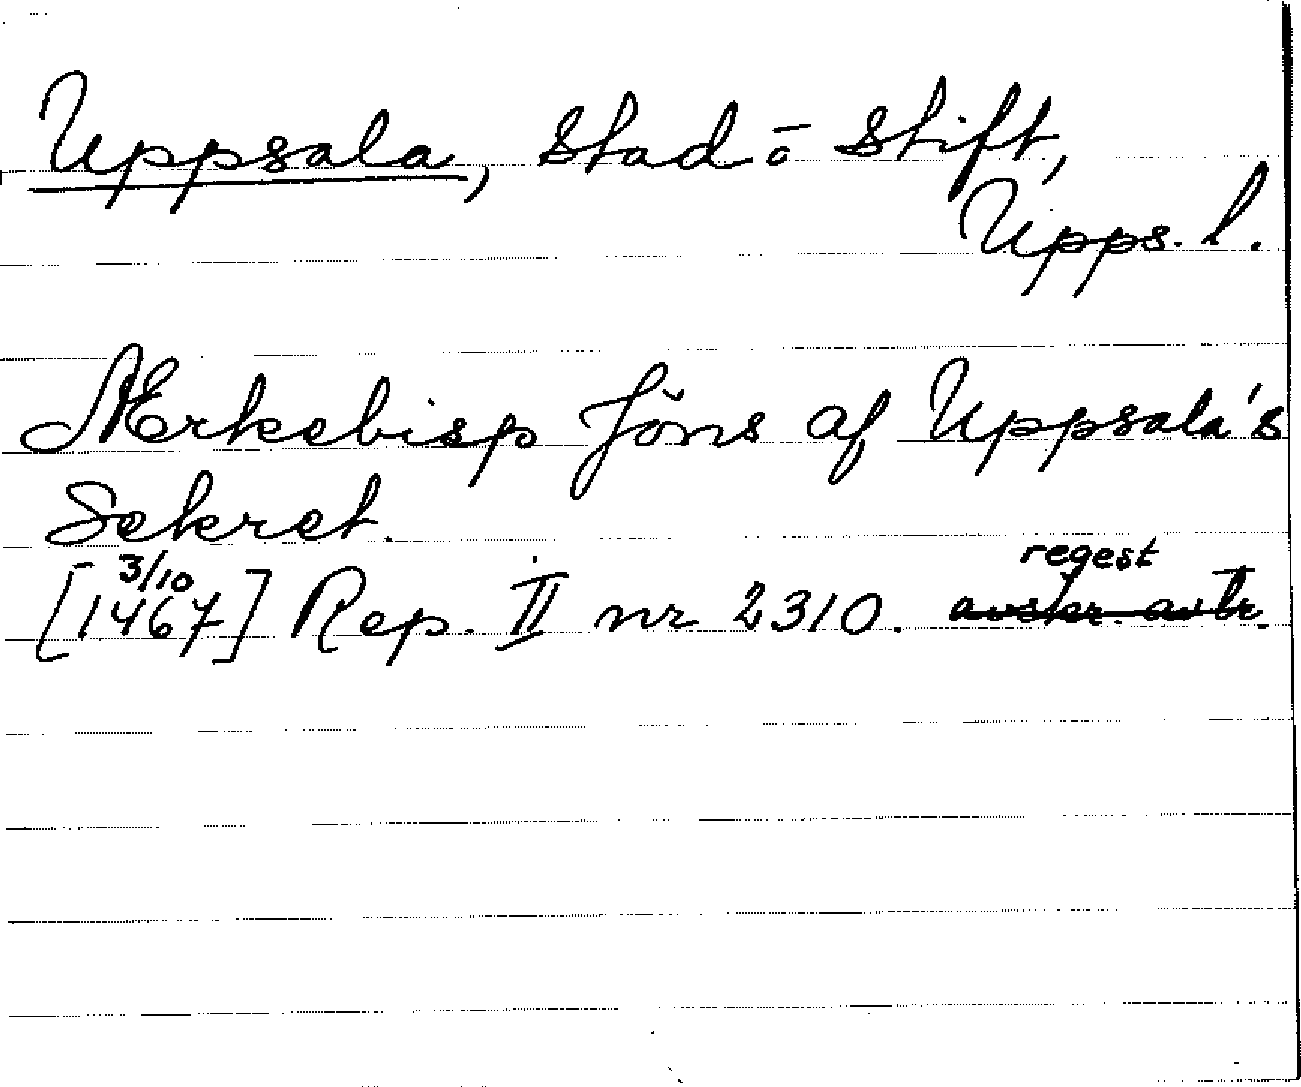 Uppsala, stad o stift,
Upps. l.
Ærkebisp Jöns af Uppsala's
Sekret.
3/10 regest
[1467] Rep. II nr 2310. avskr. avbr.